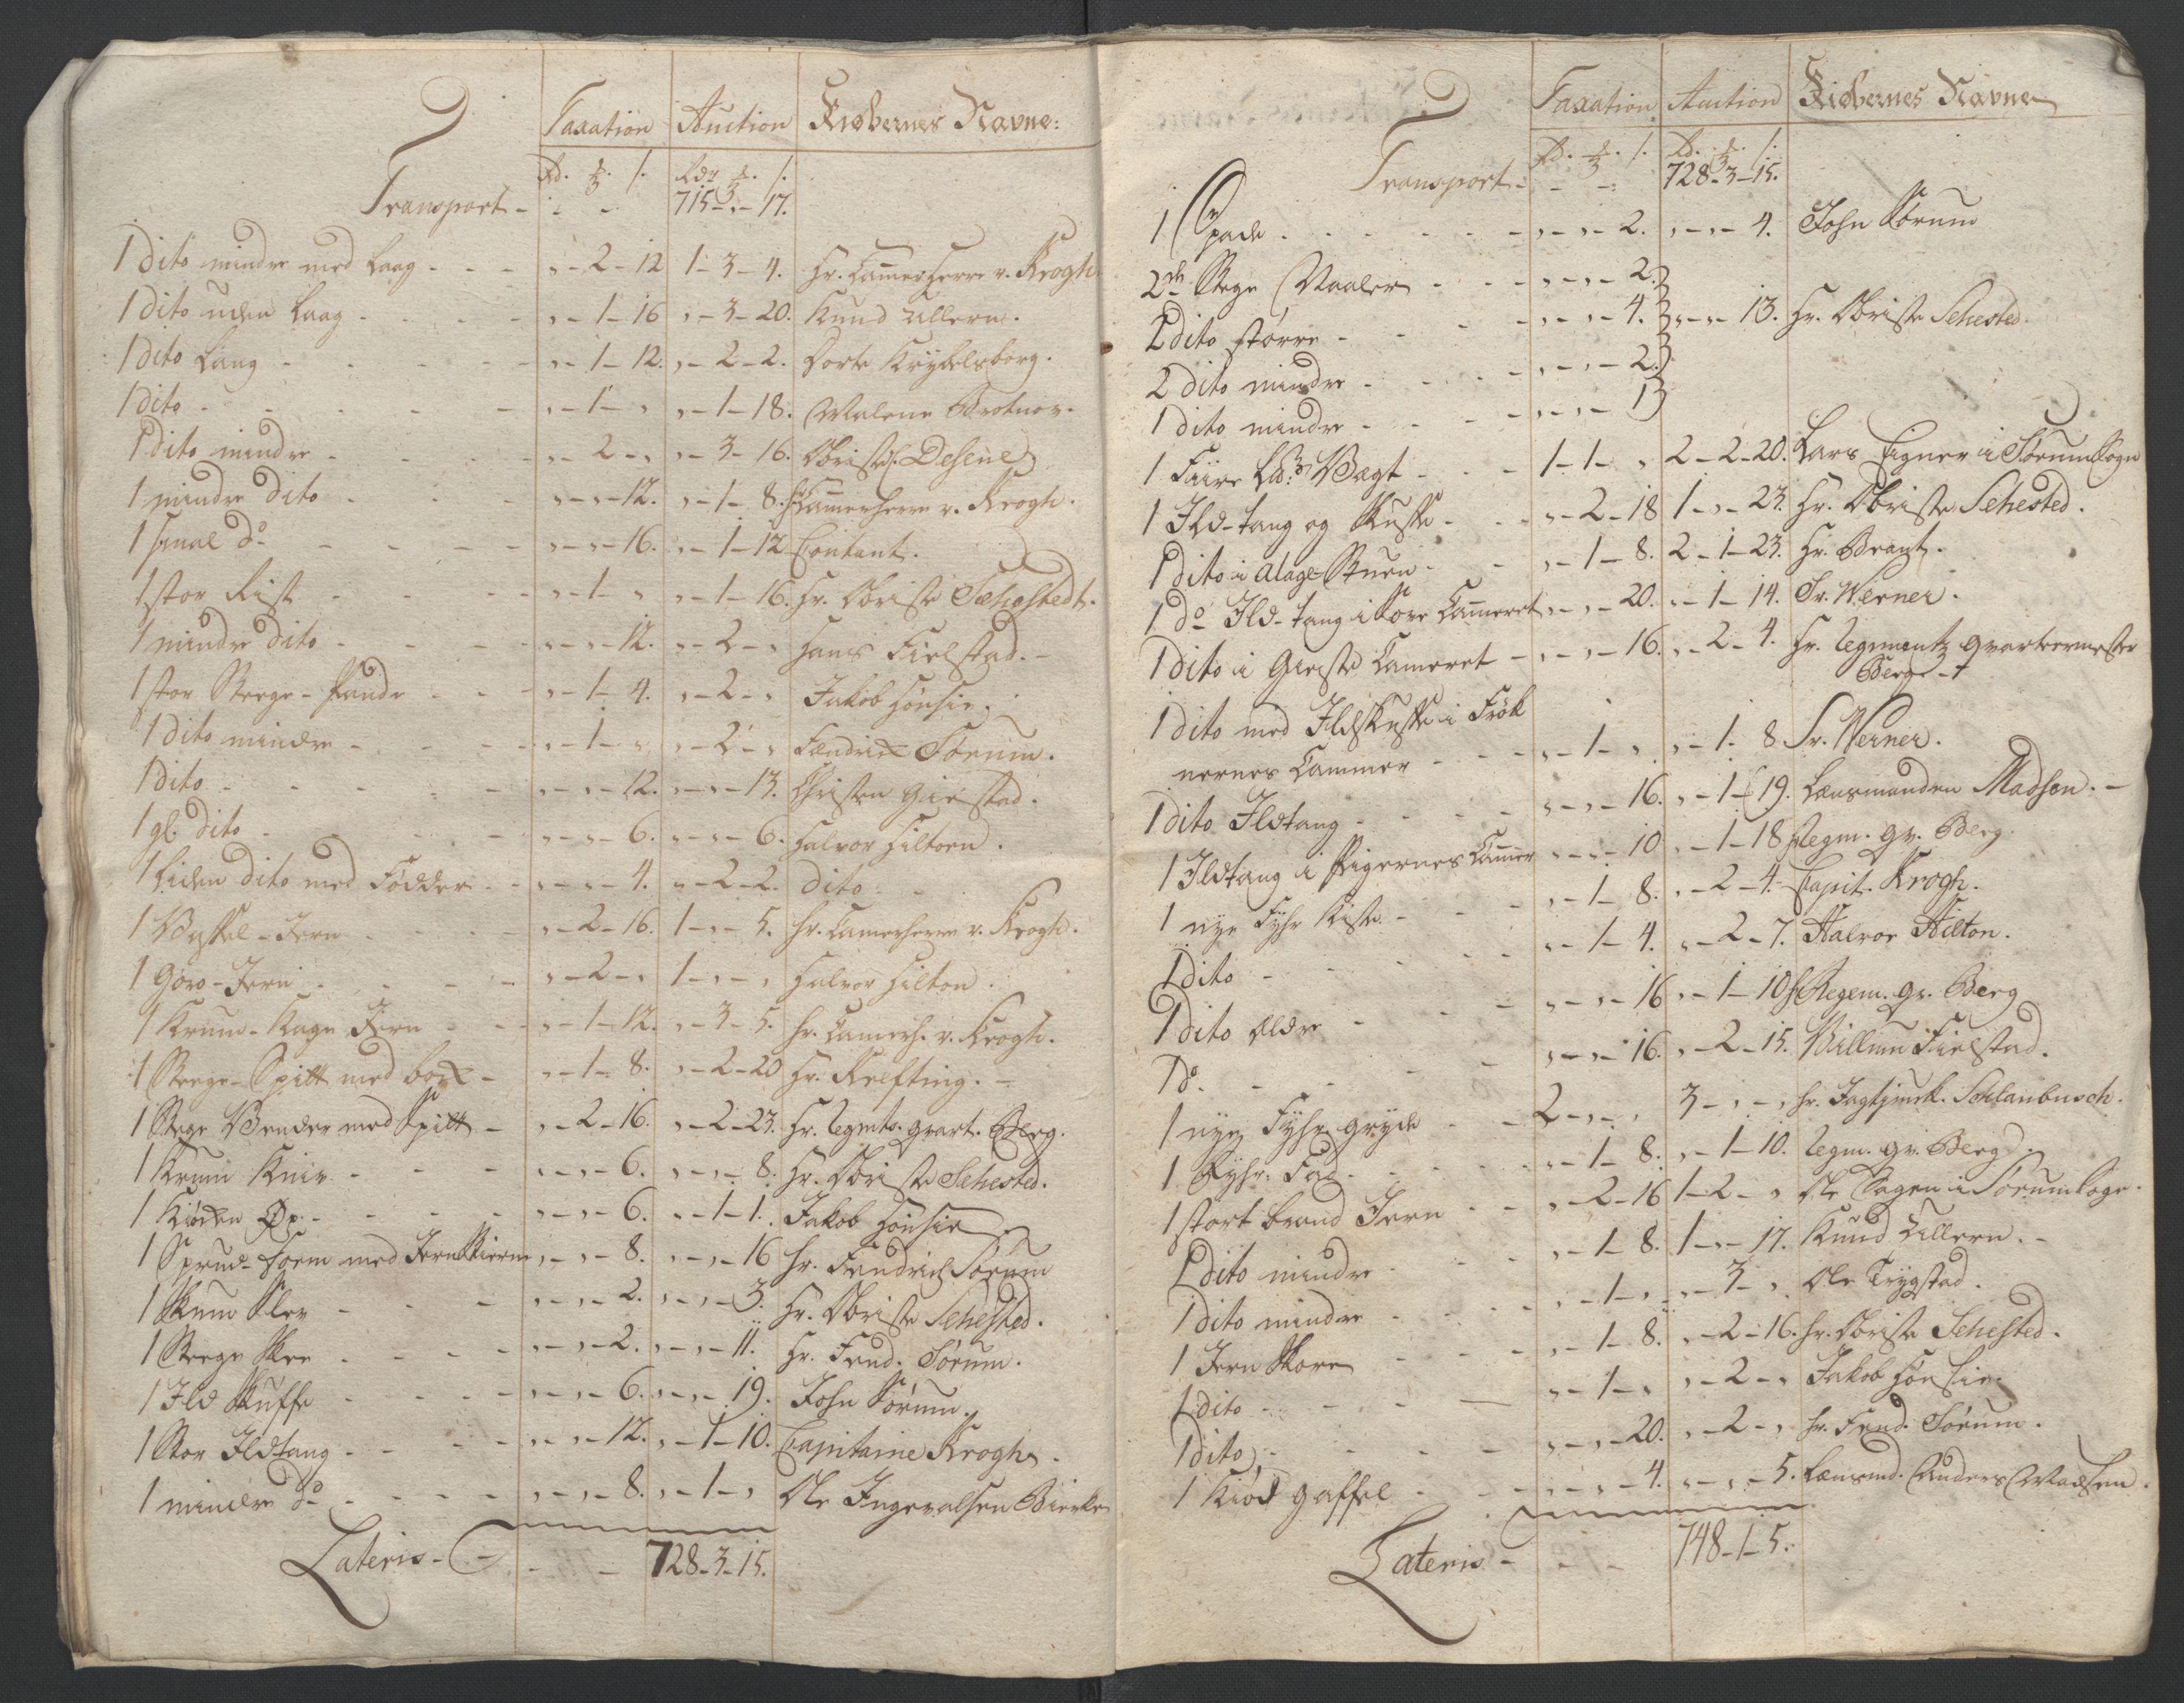 Taxation Auction Kiøbernes Navne:
Rd. ₰. s. Rdr ₰. s.
Transport - - - 715 - " - 17.
1 dito mindre med Laag - - - " - 2 - 12 1 - 3 - 4. Hr. Cammerherre v. Krogh
1 dito uden Laag - - - " - 1 - 16 " - 3 - 20. Knud Ullern.
1 dito Lang - - - " - 1 - 12. " - 2 - 2. Dorte
1 dito - - - " - 1 - " " - 1 - 18. Malene Brotnov.
1 dito mindre - - - " - 2 - " " - 3 - 16. Obristl. Desene
1 mindre dito - - - " - " - 12. " - 1 - 8. Hr Cammerherre v. Krogh.
1 smal do - - - " - " - 16. " - 1 - 12 Contant.
1 stor Rist - - - " - 1 - " " - 1 - 16. Hr. Obriste Sehestedt.
1 mindre dito - - - " - " - 12. " - 2 - " Hans Fielstad. -
1 stor Steege-Pande - - - " - 1 - 4. " - 2 - " Jakob Hønsie.
1 dito mindre - - - " - 1 - " " - 2 - " Fændrix Sørum.
1 dito - - - " - " - 12. " - " - 13. Christen Giestad.
1 gl. dito - - - " - " - 6. " - " - 6. Halvor Hiltoen.
1 Liden dito med Fødder - - " - " - 4. " - 2 - 2. dito -
1 Vaffel-Jern - - - " - 2 - 16. 1 - " - 5. Hr. Camerherre v. Krogh.
1 Goro-Jern - - - " - 2 - " 1 - " - " Halvor Hilton.
1 Krum-Kage Jern - - " - 1 - 12. " - 3 - 5. Hr. Camerh. v. Krogh.
1 Steege-Spitt med box - " - 1 - 8. " - 2 - 20 Hr. Refting. -
1 Stege Vender med Spitt - " - 2 - 16. " - 2 - 23. Hr. Regmts. qvart. Berg.
1 Krum Kniv - - - " - " - 6. " - " - 8. Hr. Obriste Sehested.
1 Kiøken Øx - - - " - " - 6. " - 1 - 1. Jakob Hønsie
1 Form med Jern " - " - 8. " - " - 16 Hr. Fendrich Sørum
1 Skum Slev - - - " - " - 2. " - " - 3. Hr. Obriste Sehested.
1 Steege Skee - - - " - " - 2. " - " - 11. Hr. Fend. Sørum.
1 Ild Skuffe - - - " - " - 6. " - " - 19. John Sørum.
1 Stor Ildtang - - - " - " - 12. " - 1 - 10. Capitaine Krogh.
1 mindre do - - - " - " - 8. " - 1 - " Ole Ingevalsen Bierke
Lateris - - - 728 - 3 - 15.
Taxation Auction Kiøbernes Navne
Rd. ₰. s. Rd. ₰. s.
Transport - - - 728 - 3 - 15.
1 Spade - - - " - " - 2. " - " - 4. John Sørum
2de Stege Naaler - - - " - " - 2.
2 dito større - - - " - " - 4. " - " - 13. Hr. Obriste Sehested.
2 dito mindre - - - " - " - 2.
1 dito mindre - - - " - " - 1
1 Vægt - - 1 - 1 - " 2 - 2 - 20. Lars Eigner i Sørum Sogn
1 Ild-tang og Skuffe - - - " - 2 - 18 1 - " - 23. Hr. Obriste Sehested.
1 dito i Stuen - - " - 1 - 8. 2 - 1 - 23. Hr. Brant.
1 do Ild-tang i Sove Cammeret " - " - 20. " - 1 - 14. Sr. Werner.
1 dito i Gieste Cameret - " - " - 16. " - 2 - 4. Hr. Regiments qvarteermester
Berg -
1 dito med Ildskuffe i Frøk
nernes Cammer - - - " - 1 - " " - 1 - 8 Sr. Werner.
1 dito Ildtang - - - " - " - 16. " - 1 - 19. Lensmanden Madsen. -
1 Ildtang i Pigernes Cammer " - " - 10 " - 1 - 18 Regm. qv. Berg.
1 nye Fyhr Kiste - - - " - 1 - 8. " - 2 - 4. Capit. Krogh.
1 dito - - - " - 1 - 4. " - 2 - 7. Halvor Hilton.
1 dito ældre - - - " - " - 16 " - 1 - 10 Regem. qv. Berg
1 do. - - - " - " - 16. " - 2 - 15. Villum Fielstad.
1 nye Fyhr gryde - - 2 - " - " 3 - " - " Hr. Jagtjunk. Schlanbusch.
1 Fyhr: Fad - - - " - 1 - 8. " - 1 - 10. Regm. qv. Berg
1 stort brand Jern - - " - 2 - 16 1 - 2 - " Ole Sagen i Sørum Sogn.
1 dito mindre - - - " - 1 - 8. 1 - " - 17. Knud Ullern. -
1 dito mindre - - - " - 1 - " " - 3 - " Ole Trygstad.
1 Jern Skore - - - " - 1 - 8. " - 2 - 16. Hr. Obriste Sehested.
1 dito - - - " - 1 - " " - 2 - " Jakob Hønsie.
1 dito - - - " - " - 20. " - 2 - " Hr. Fend. Sørum.
1 Kiød gaffel - - - " - " - 4. " - " - 5. Lænsmd. Anders Madsen.
Lateris - - - 748 - 1 - 5.